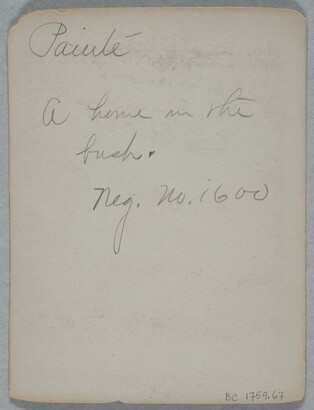 Paiute
A home in the
bush.
Neg. No. 1600
BC 1759.67